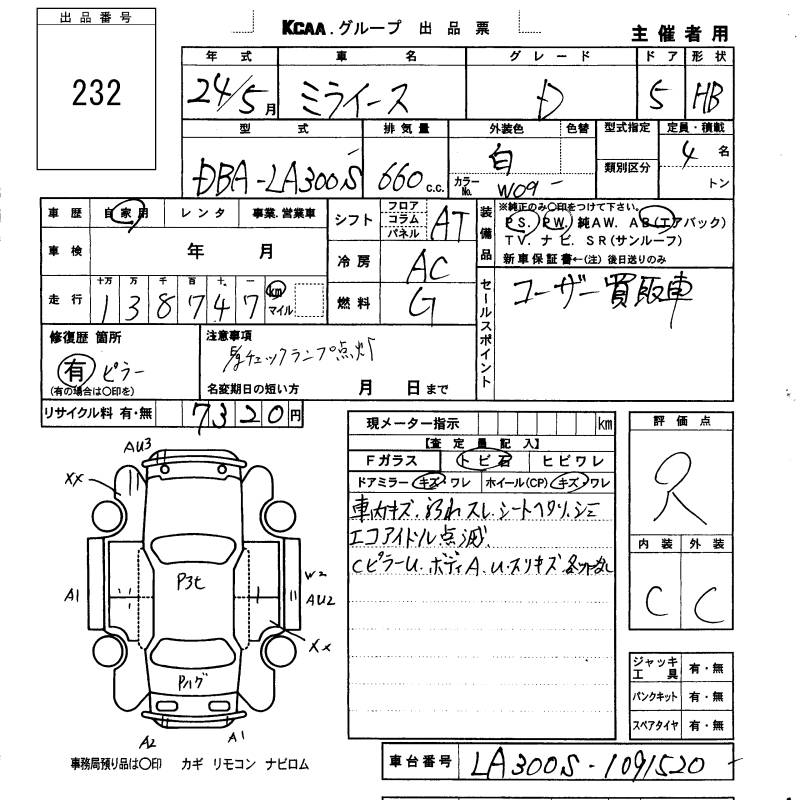 出品番号
232
KCAA.グループ 出品票
主催者用
年式 車名 グレード ドア 形状
24/5月 ミライース D 5 HB
型式 排気量 外装色 色替 型式指定 定員・積載
DBA-LA300S 660 c.c. 白 カラーNo. W09 類別区分 4名
トン
車歴 自家用 レンタ 事業.営業車
車検 年 月
走行 十万 万 千 百 十 一
138747 km マイル
シフト フロア コラム パネル AT
冷房 AC
燃料 G
装備品 ※純正のみ○印をつけて下さい。
PS. PW. 純AW. AB(エアバック)
TV. ナビ. SR(サンルーフ)
新車保証書←(注) 後日送りのみ
セールスポイント
ユーザー買取車
修復歴 箇所
有 ピラー
(有の場合は○印を)
注意事項
E/gチェックランプ点灯
名変期日の短い方 月 日まで
リサイクル料 有・無 7320円
現メーター指示 km
【査定員記入】
Fガラス トビ石 ヒビワレ
ドアミラー キズ・ワレ ホイール(CP) キズ・ワレ
車内キズ. スレ. シートヘタリ. シミ
エコアイドル点滅.
CピラーU. ボディA. U. スリキズ.
評価点
R
内装 外装
C C
ジャッキ工具 有・無
パンクキット 有・無
スペアタイヤ 有・無
AU3
XX
P3t
A1
W2
AU2
XX
Pハゲ
A2
A1
事務局預り品は○印 カギ リモコン ナビロム
車台番号 LA300S-1091520